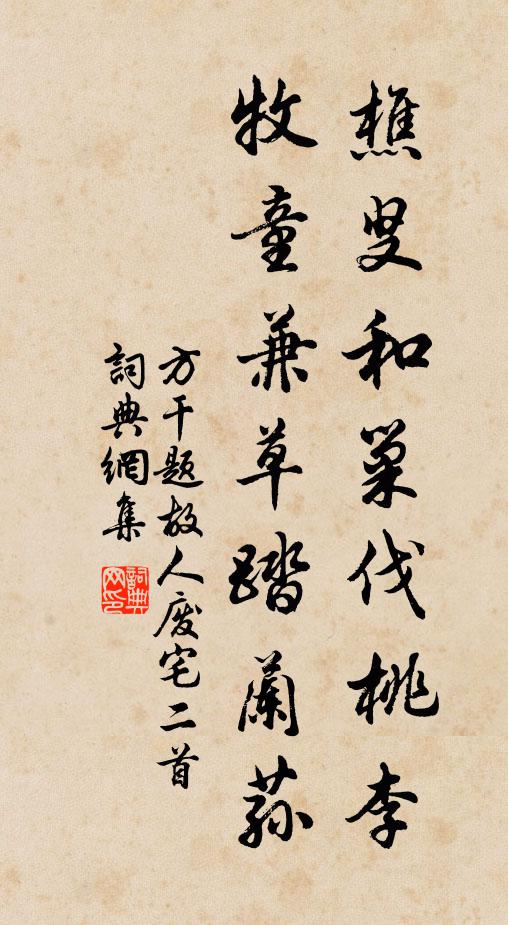 樵叟和巢伐桃李
牧童兼草踏蘭蓀
方干题故人废宅二首
詞典網集
詞典网印